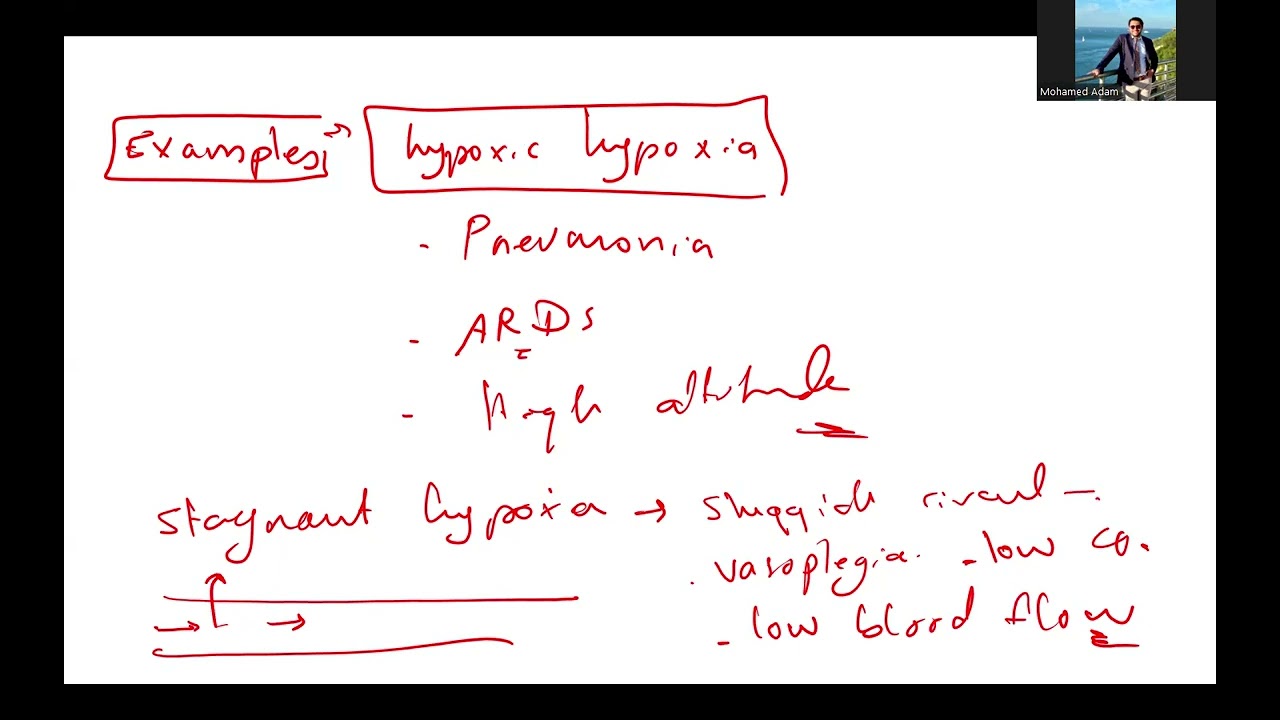 Mohamed Adam
Examples, hypoxic hypoxia
- Pneumonia
- ARDS
- High altitude
stagnant hypoxia → sluggish
. vasoplegia. - low CO.
- low blood flow